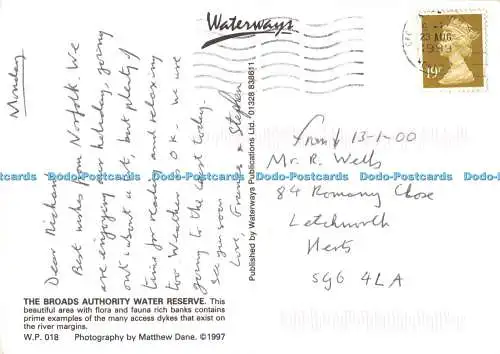 Waterways
23 AUG
1999
19P
Monday
Dear Richard
Best wishes from Norfolk. We
are enjoying our holiday, going
out & about a bit, but plenty of
time for reading and relaxing
too. Weather is O.K. - we are
going to the coast today.
See you soon
Love, Frances & Stephen
Published by Waterways Publications Ltd. 01328 838611
13-1-00
Mr. R. Wells
84 Romany Close
Letchworth
Herts
SG6 4LA
THE BROADS AUTHORITY WATER RESERVE. This
beautiful area with flora and fauna rich banks contains
prime examples of the many access dykes that exist on
the river margins.
W.P. 018 Photography by Matthew Dane. ©1997
Dodo-Postcards Dodo-Postcards Dodo-Postcards Dodo-Postcards